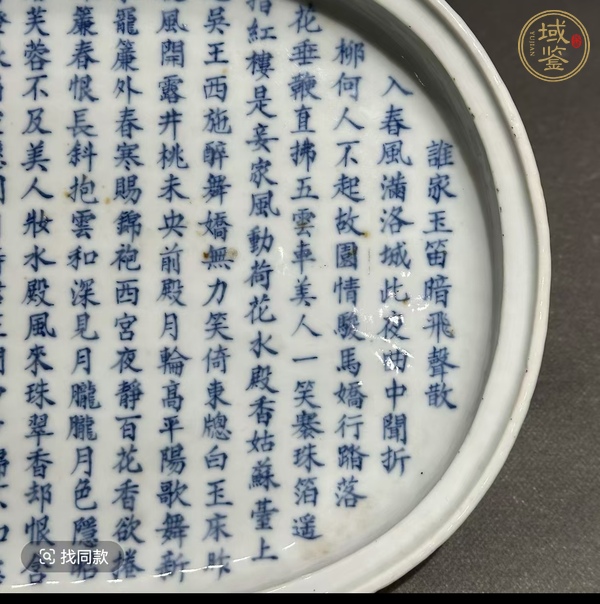 域鑒
YUJIAN
誰家玉笛暗飛聲散
入春風滿洛城此夜曲中聞折
柳何人不起故園情駿馬嬌行踏落
花垂鞭直拂五雲車美人一笑褰珠箔遙
指紅樓是妾家風動荷花水殿香姑蘇臺上
吳王西施醉舞嬌無力笑倚東牕白玉床昨
風開露井桃未央前殿月輪高平陽歌舞新
寵簾外春寒賜錦袍西宮夜靜百花香欲捲
簾春恨長斜抱雲和深見月朧朧月色隱昭
芙蓉不及美人妝水殿風來珠翠香却恨含
找同款